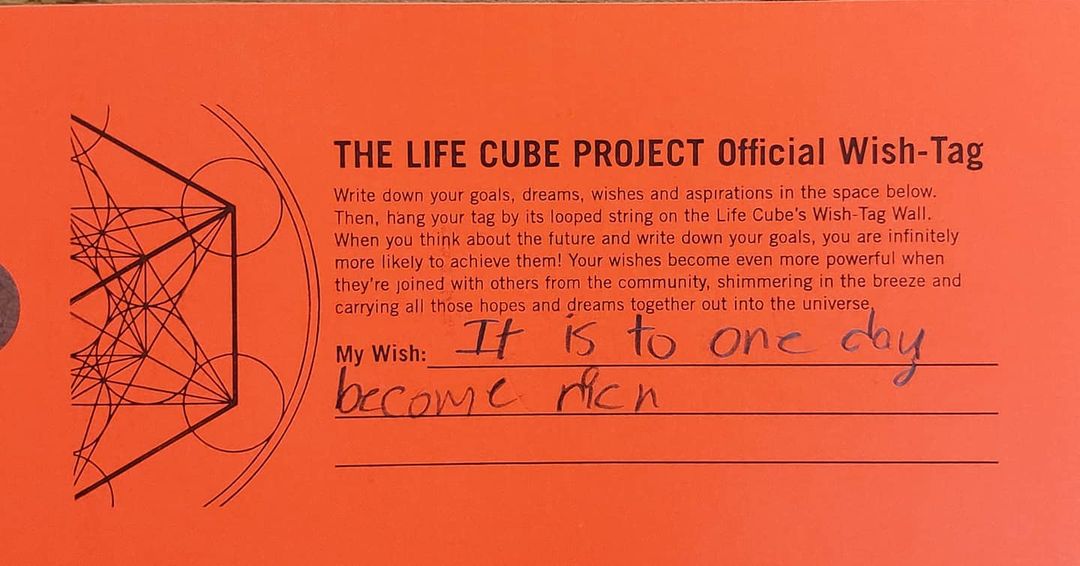 THE LIFE CUBE PROJECT Official Wish-Tag
Write down your goals, dreams, wishes and aspirations in the space below.
Then, hang your tag by its looped string on the Life Cube's Wish-Tag Wall.
When you think about the future and write down your goals, you are infinitely
more likely to achieve them! Your wishes become even more powerful when
they're joined with others from the community, shimmering in the breeze and
carrying all those hopes and dreams together out into the universe.
My Wish: It is to one day
become rich